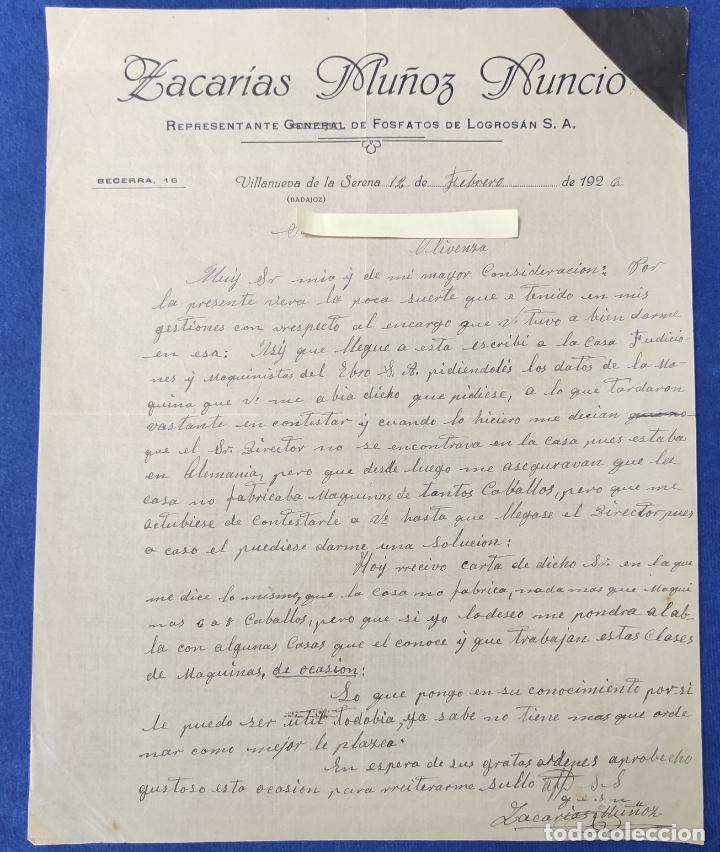 Zacarías Muñoz Nuncio
Representante General de Fosfatos de Logrosán S. A.
BECERRA, 16
Villanueva de la Serena 12 de Febrero de 1926
(BADAJOZ)
Olivenza
Muy Sr mio y de mi mayor Consideracion: Por
la presente vera la poca suerte que e tenido en mis
gestiones con rrespecto al encargo que Vº tuvo a bien darme
en esa: Asy que llegue a esta escribi a la Casa Fudicio
nes y Maquinistas del Ebro S. A. pidiendoles los datos de la Ma-
quina que Vº me abia dicho que pidiese, a lo que tardaron
vastante en contestar y cuando lo hiciero me decian
que el Sr. Director no se encontrava en la casa pues estaba
en Alemania, pero que desde luego me aseguravan que la
casa no fabricaba Maquinas de tantos Caballos, pero que me
actubiese de contestarle a Vº hasta que llegase el Director pues
a caso el puediese darme una solucion:
Hoy rrecivo carta de dicho Sr. en la que
me dice lo mismo, que la Casa no fabrica, nada mas que Maqui
nas 6 a 8 Caballos, pero que si yo lo deseo me pondra al ab-
la con algunas Casas que el conoce y que trabajan estas Clases
de Maquinas, de ocasion:
Lo que pongo en su conocimiento por si
le puedo ser util todobia, ya sabe no tiene mas que orde
nar como mejor le plazca.
En espera de sus gratas ordenes aprobecho
gustoso esta ocasion para rreiterarme sullo S. S
q e s m
Zacarias Muñoz
todocoleccion
todocoleccion.net